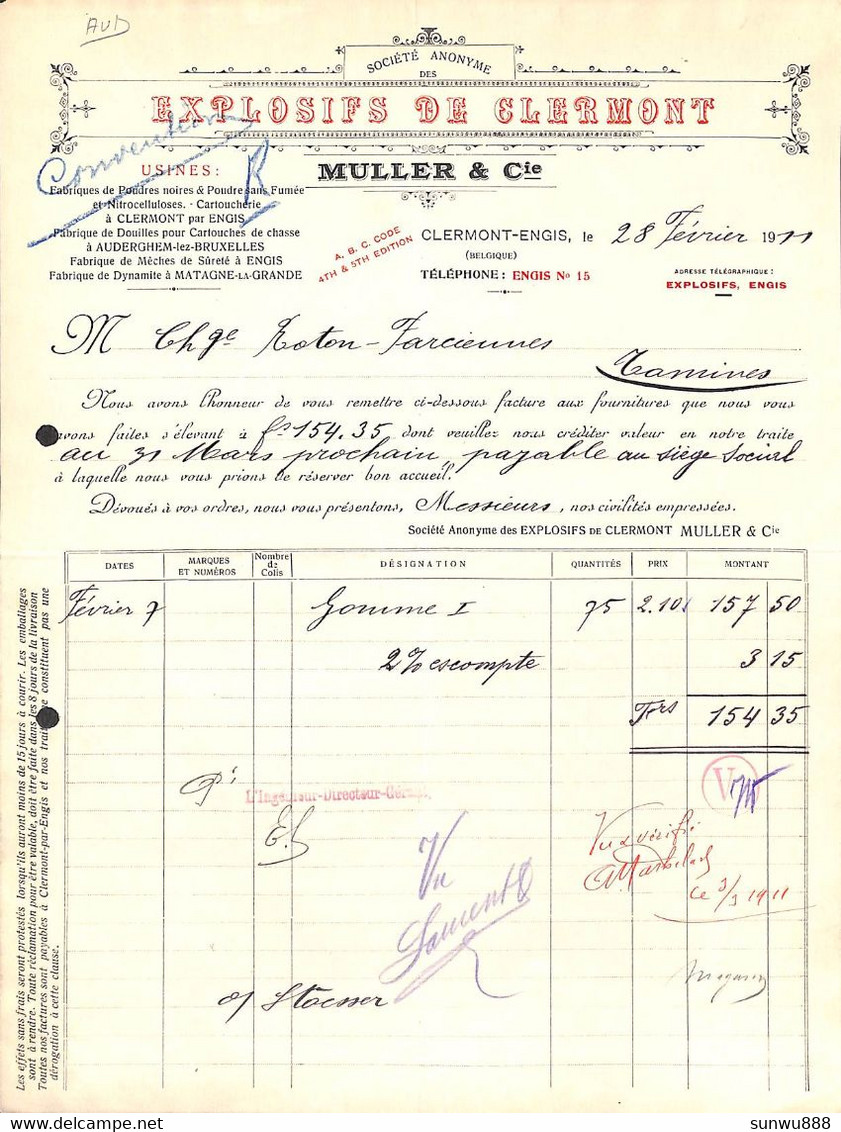 AUD
SOCIÉTÉ ANONYME
DES
EXPLOSIFS DE CLERMONT
MULLER & Cie
Convention
USINES:
Fabriques de Poudres noires & Poudre sans Fumée
et Nitrocelluloses. - Cartoucherie
à CLERMONT par ENGIS
Fabrique de Douilles pour Cartouches de chasse
à AUDERGHEM-lez-BRUXELLES
Fabrique de Mèches de Sûreté à ENGIS
Fabrique de Dynamite à MATAGNE-LA-GRANDE
A. B. C. CODE
4TH & 5TH EDITION
CLERMONT-ENGIS, le 28 Février 1911
(BELGIQUE)
TÉLÉPHONE: ENGIS No 15
ADRESSE TÉLÉGRAPHIQUE:
EXPLOSIFS, ENGIS
M Chge Roton-Farciennes
Tamines
Nous avons l'honneur de vous remettre ci-dessous facture aux fournitures que nous vous
avons faites s'élevant à frs 154.35 dont veuillez nous créditer valeur en notre traite
au 31 Mars prochain, payable au siège social
à laquelle nous vous prions de réserver bon accueil.
Dévoués à vos ordres, nous vous présentons, Messieurs, nos civilités empressées.
Société Anonyme des EXPLOSIFS DE CLERMONT MULLER & Cie
DATES MARQUES ET NUMÉROS Nombre de Colis DÉSIGNATION QUANTITÉS PRIX MONTANT
Février 7 Gomme I 75 2.10 157 50
2% escompte 3 15
Frs 154 35
L'Ingénieur-Directeur-Gérant,
Vu & vérifié
le 3/3 1911
Vu
Magasin
Stoesser
Les effets sans frais seront protestés lorsqu'ils auront moins de 15 jours à courir. Les emballages
sont à rendre. Toute réclamation pour être valable, doit être faite dans les 8 jours de la livraison
Toutes nos factures sont payables à Clermont-par-Engis et nos traites ne constituent pas une
dérogation à cette clause.
delcampe.net
sunwu888